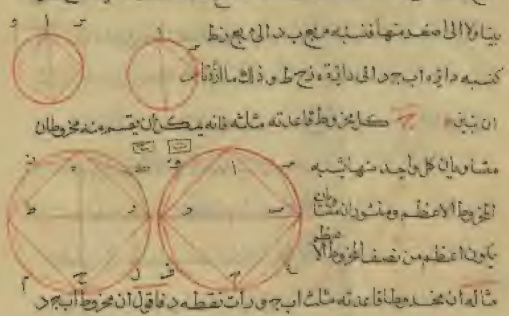 بينا ولا الى اصغر منها فنسبه مربع ب د الى مربع ز ط
كنسبه دايره ا ب ج د الى دايرة ه ز ح ط وذلك ما اردنا
ان نبين ج كل مخروط قاعدته مثلثه فانه يمكن ان يقسم منه مخروطان
متساويان كل واحد منها يشبه
المخروط الاعظم ومنشوران متساويان
يكون اعظم من نصف المخروط الاعظم
مثاله ان مخروطا قاعدته مثلث ا ب ج وراسه نقطه د فاقول ان مخروط ا ب ج د